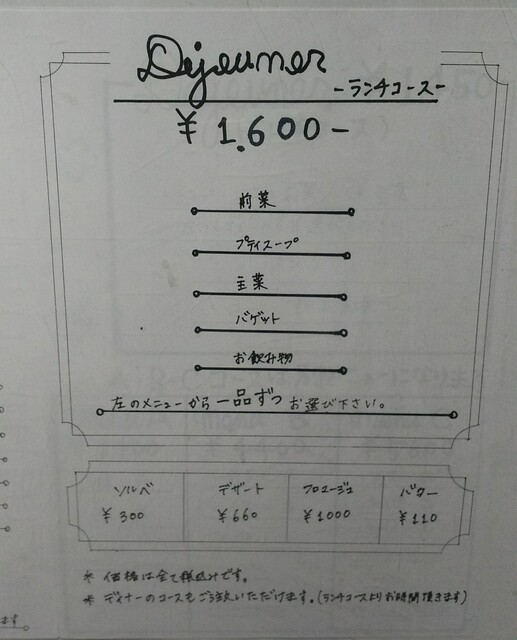 Dejeuner
-ランチコース-
¥1.600-
前菜
プティスープ
主菜
バゲット
お飲み物
左のメニューから一品ずつお選び下さい。
ソルベ デザート フロマージュ バター
¥300 ¥660 ¥1000 ¥110
* 価格は全て税込みです。
* ディナーのコースもご注文いただけます。(ランチコースよりお時間頂きます)
ます